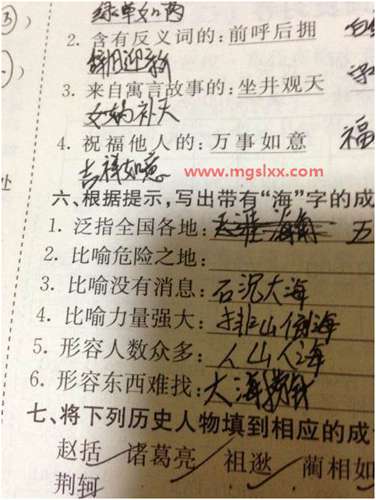 绿草如茵
2. 含有反义词的:前呼后拥
辞旧迎新
3. 来自寓言故事的:坐井观天
女娲补天
4. 祝福他人的:万事如意 福
吉祥如意
www.mgslxx.com
六、根据提示,写出带有“海”字的成
1. 泛指全国各地:天涯海角 五
2. 比喻危险之地:
3. 比喻没有消息:石沉大海
4. 比喻力量强大:排山倒海
5. 形容人数众多:人山人海
6. 形容东西难找:大海捞针
七、将下列历史人物填到相应的成
赵括 诸葛亮 祖逖 蔺相如
荆轲